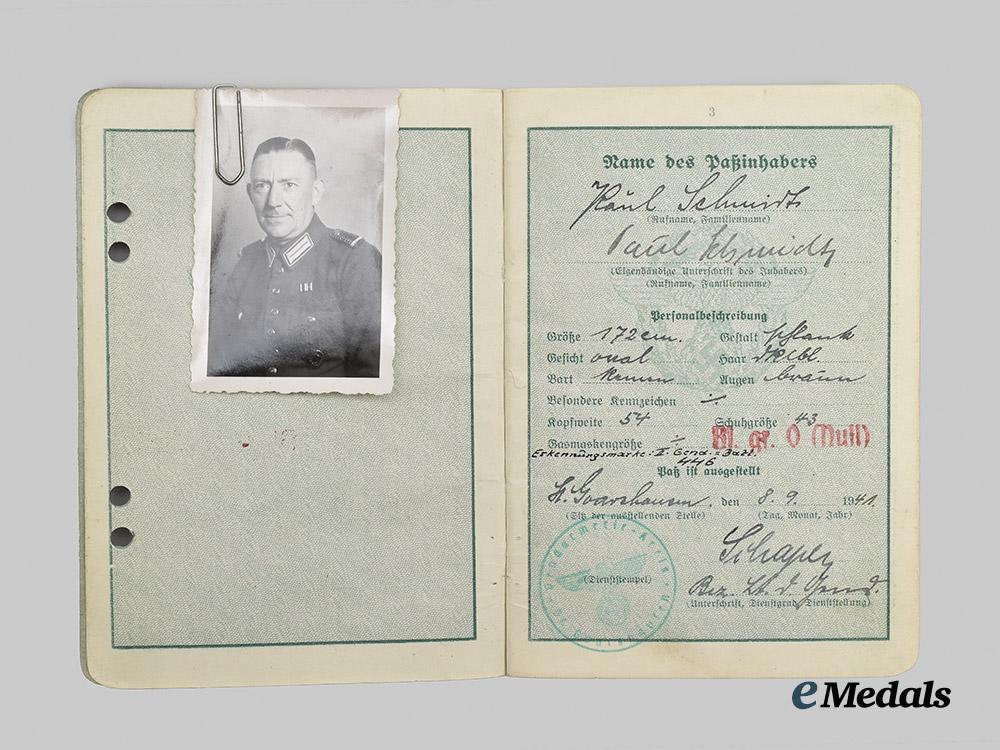 3
Name des Paßinhabers
Paul Schmidt
(Rufname, Familienname)
Paul Schmidt
(Eigenhändige Unterschrift des Inhabers)
(Rufname, Familienname)
Personalbeschreibung
Größe 172 cm. Gestalt schlank
Gesicht oval Haar dklbl.
Bart keinen Augen braun
Besondere Kennzeichen ./.
Kopfweite 54 Schuhgröße 43
Gasmaskengröße ./. Bl. gr. O (Null)
Erkennungsmarke: II. Gend. Batl. 446
Paß ist ausgestellt
St. Goarshausen, den 8. 9. 1941.
(Sitz der ausstellenden Stelle) (Tag, Monat, Jahr)
Gendarmerie-Kreis
St. Goarshausen
(Dienststempel)
Bez. Lt. d. Gend.
(Unterschrift, Dienstgrad, Dienststellung)
eMedals